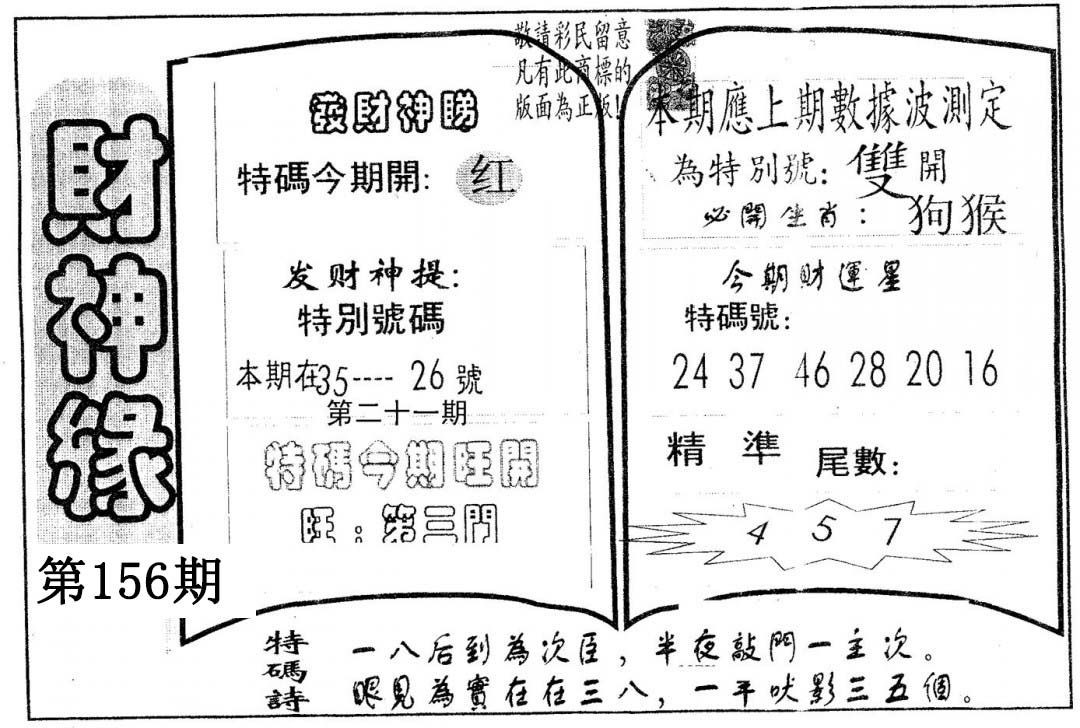 財神緣
第156期
敬請彩民留意
凡有此商標的
版面為正版!
發財神賜
特碼今期開: 红
发财神提:
特別號碼
本期在35----26號
第二十一期
特碼今期旺開
旺:第三門
本期應上期數據波測定
為特別號: 雙開
必開生肖: 狗猴
今期財運星
特碼號:
24 37 46 28 20 16
精準 尾數:
4 5 7
特碼詩
一八后到為次臣,半夜敲門一主次。
眼見為實在在三八,一平吠影三五個。